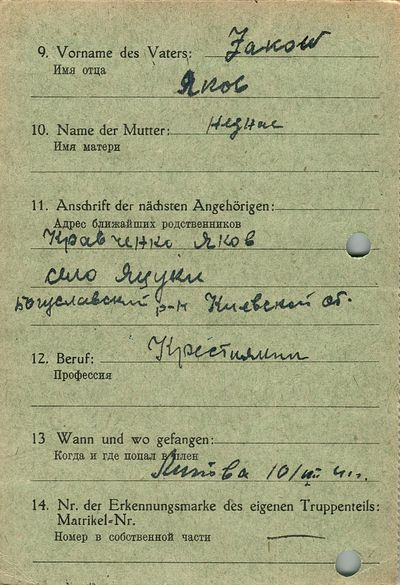 9. Vorname des Vaters: Jakow
Имя отца
Яков
10. Name der Mutter:
Имя матери
11. Anschrift der nächsten Angehörigen:
Адрес ближайших родственников
Кравченко Яков
село Яцуки
Богуславский р-н Киевской об.
12. Beruf: Крестиянин
Профессия
13 Wann und wo gefangen:
Когда и где попал в плен
10/VIII 41г.
14. Nr. der Erkennungsmarke des eigenen Truppenteils:
Matrikel-Nr.
Номер в собственной части —